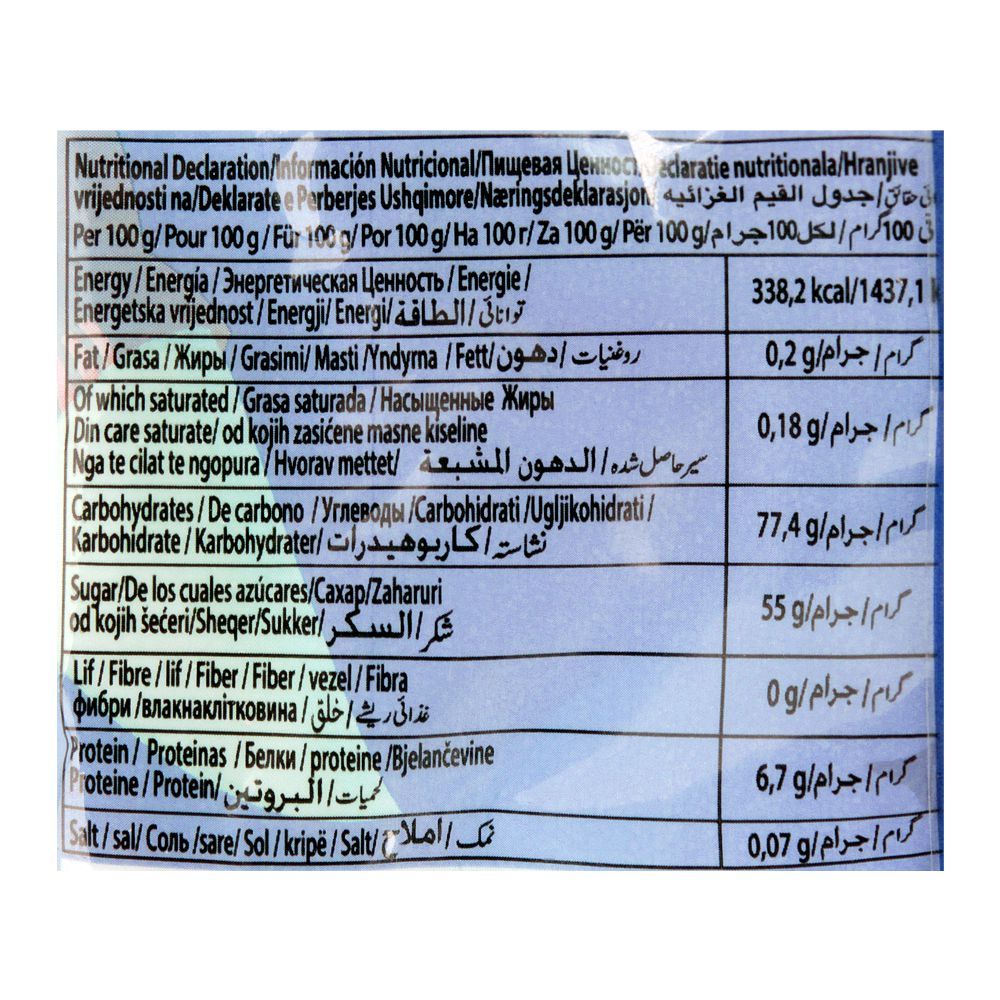 Nutritional Declaration/Información Nutricional/Пищевая Ценност eclaratie nutritionala/Hranjive
vrijednosti na/Deklarate e Perberjes Ushqimore/Næringsdeklarasjon جدول القيم الغزائيه/
Per 100 g/ Pour 100 g / Für 100 g/ Por 100 g/ На 100 г/ Za 100 g/ Për 100 g/لكل100جرام/100گرام/
Energy / Energía / Энергетическая Ценность / Energie /
Energetska vrijednost / Energji/ Energi/الطاقة/توانائی
338,2 kcal/1437,1 k
Fat / Grasa / Жиры / Grasimi/ Masti /Yndyrna / Fett/دهون/روغنیات
0,2 g/جرام/گرام
Of which saturated / Grasa saturada / Насыщенные Жиры
Din care saturate/ od kojih zasićene masne kiseline
Nga te cilat te ngopura / Hvorav mettet/ الدهون المشبعة/سیر حاصل شدہ
0,18 g/جرام/گرام
Carbohydrates / De carbono / Углеводы /Carbohidrati /Ugljikohidrati /
Karbohidrate / Karbohydrater/كاربوهيدرات/نشاستہ
77,4 g/جرام/گرام
Sugar/De los cuales azúcares/Сахар/Zaharuri
od kojih šećeri/Sheqer/Sukker/السكر/شکر
55 g/جرام/گرام
Lif / Fibre / lif / Fiber / Fiber / vezel / Fibra
фибри /влакнаклітковина / خلق/غذائی ریشے
0 g/جرام/گرام
Protein / Proteinas / Белки / proteine /Bjelančevine
Proteine / Protein/البروتين/لحمیات
6,7 g/جرام/گرام
Salt / sal/ Соль /sare/ Sol / kripë / Salt/املاح/نمک
0,07 g/جرام/گرام